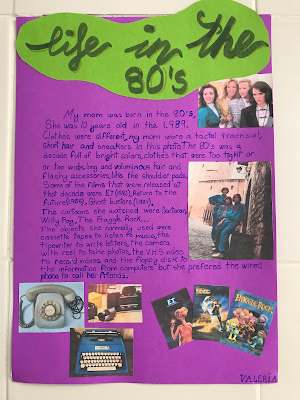 life in the
80's
My mom was born in the 80's,
She was 10 years old in the 1.989.
Clothes were different, my mom wore a tactel tracksuit,
short hair and sneakers in this photo. The 80's was a
decade full of bright colors, clothes that were too tight or
or too wide, long and voluminous hair and
flashy accessories, like the shoulder pads.
Some of the films that were released at
that decade were ET (1982), Return to the
Future (1985), Ghost busters (1984),
The cartoons she watched were (cartoon)
Willy Fog, The Fraggle Rock...
The objects she normally used were
cassette tapes to listen to music, the
tipewriter to write letters, the camera
with reel to take photos, the V.H.S video
to record videos and the floppy disk to
the information from computers but she preferred the wired
phone to call her friends.
E.T.
FRAGGLE ROCK
VALERIA